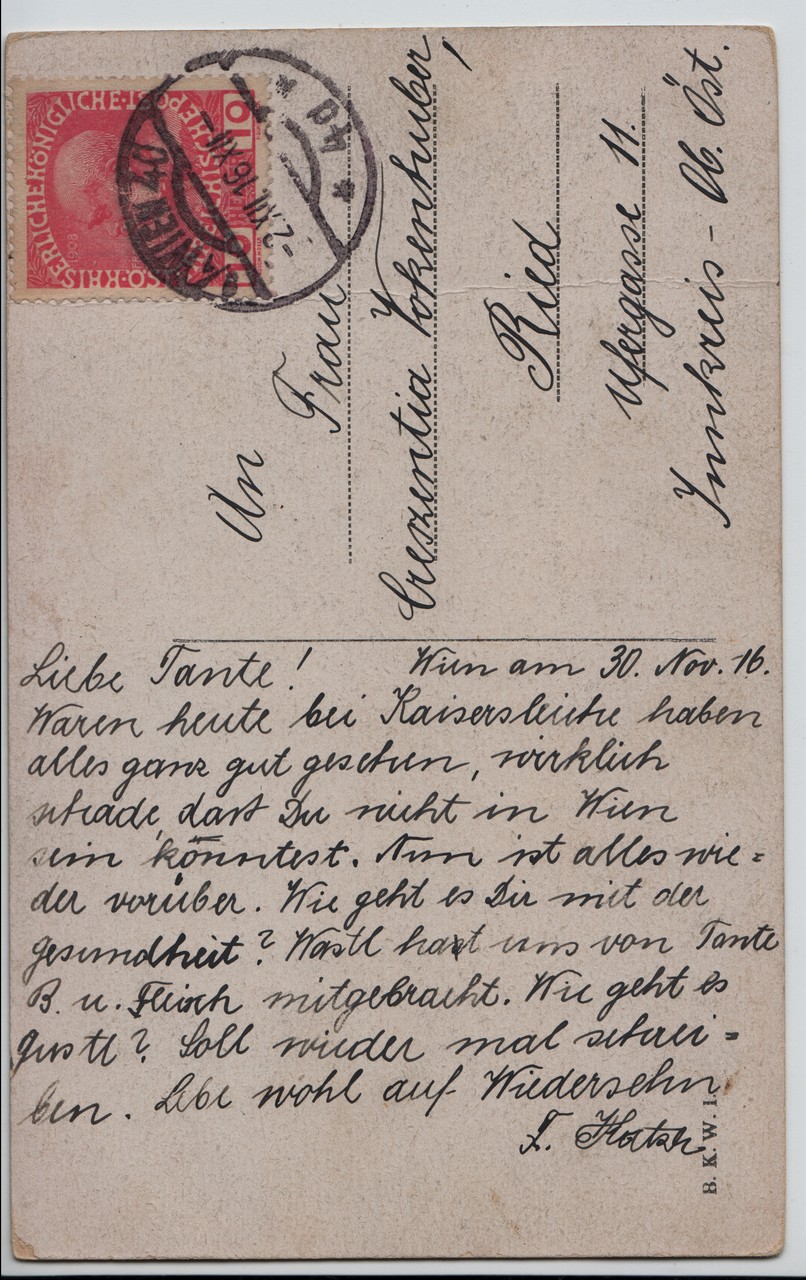 Liebe Tante! Wien am 30. Nov. 16.
Waren heute bei Kaisersleiche haben
alles ganz gut gesehen, wirklich
schade, dass Du nicht in Wien
sein könntest. Nun ist alles wie=
der vorüber. Wie geht es Dir mit der
Gesundheit? Wastl hat uns von Tante
B. u. Fleisch mitgebracht. Wie geht es
Gustl? Soll wieder mal schrei=
ben. Lebe wohl auf Wiedersehn
F.
An
Frau
Creszentia Zokenhuber,
Ried
Ufergasse 11.
Innkreis - Ob. Öst.
KAISERLICHE KÖNIGLICHE
10
10
1908
WIEN 40
-2.XII.16.XII-
* 4d *
B. K. W. I.